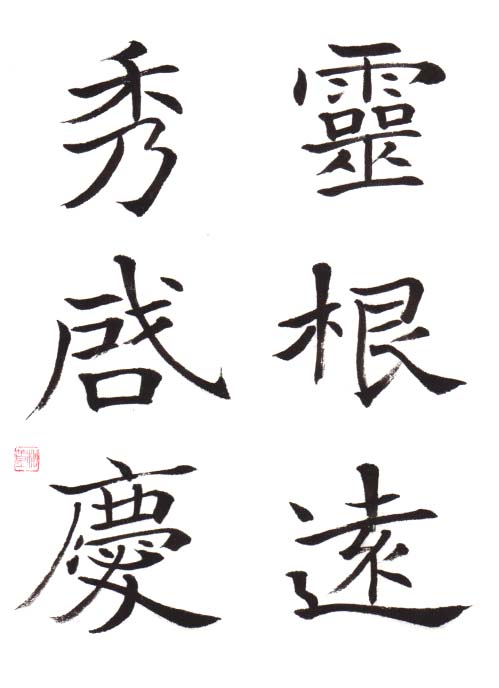 靈根遠
秀啓慶